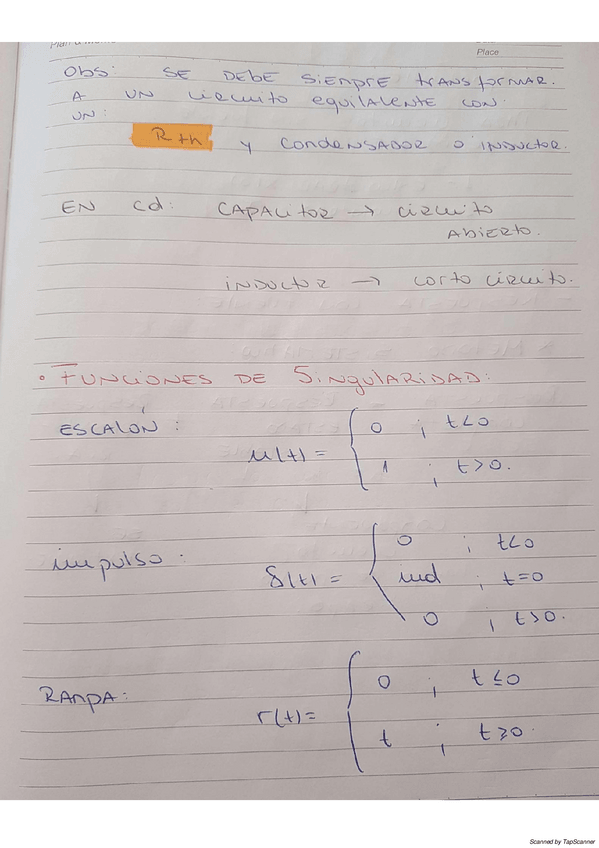 Place
Obs: SE DEBE SIEMPRE transformar.
A UN circuito equilalente con
UN:
Rth y CondENSADOR o INDUCTOR.
EN cd: CAPACITOR → circuito
ABIERTO.
INDUCTOR → corto circuito.
• FUNCIONES DE SINgULARIDAD:
ESCALÓN: μ(t) = { 0 ; t<0
1 ; t>0.
impulso: δ(t) = { 0 ; t<0
ind ; t=0
0 ; t>0.
RAMPA: r(t) = { 0 ; t≤0
t ; t≥0.
Scanned by TapScanner